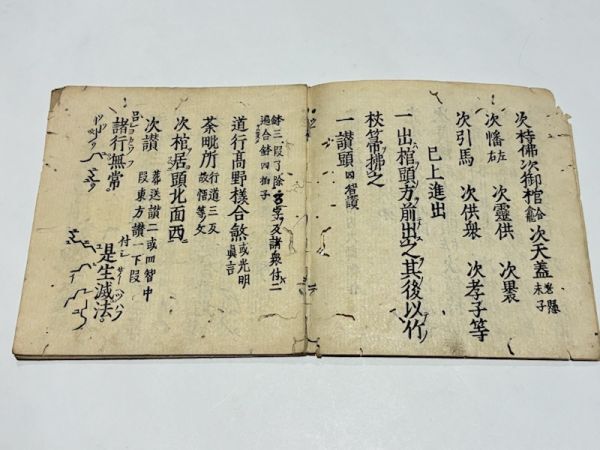 次持佛次御棺 次天蓋
次幡左右 次靈供 次裹
次引馬 次供衆 次孝子等
已上進出
一出棺頭方前出之其後以竹
杖箒拂之
一讃頭四智讃
鉢三段了除 及諸衆付二
遍合鉢四拍子
道行髙野樣合煞或光明真言
荼毗所行道三反
次棺居頭北面西
次讃葬送讃二或四智中
段東方讃一下段
呂諸行無常
付
是生滅法